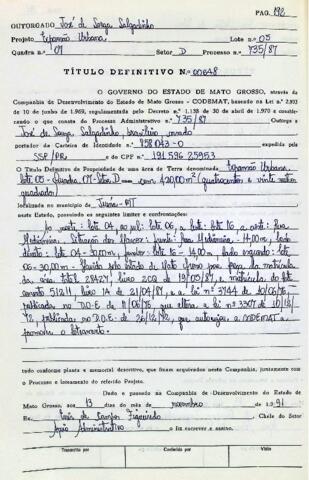 PAG. 192
OUTORGADO José de Souza Salgadinho
Projeto Expansão Urbana Lote n.o 05
Quadra n.o 07 Setor D Processo n.o 735/87
TÍTULO DEFINITIVO N.o 00648
O GOVERNO DO ESTADO DE MATO GROSSO, através da
Companhia de Desenvolvimento do Estado de Mato Grosso - CODEMAT, baseada na Lei n.o 2.903
de 10 de junho de 1.969, regulamentada pelo Decreto n.o 1.138 de 30 de abril de 1.970 e considerando
o que consta do Processo Administrativo n.o 735/87 Outorga a
José de Souza Salgadinho, brasileiro, casado
portador da Carteira de Identidade n.o 958043-0 expedida pela
SSP/PR e do CPF n.o 191596 25953
O Título Definitivo de Propriedade de uma área de Terra denominada Expansão Urbana
lote 05 - Quadra 07 - Setor D com 420,00m² (quatrocentos e vinte metros
quadrados)
localizada no município de -MT
neste Estado, possuindo os seguintes limites e confrontações:
Ao norte: lote 04, ao sul: lote 06, a leste: lote 16, a oeste: Rua
frente: para 14,00m, lado
direito: lote 04 - 30,00m, fundos: lote 16 - 14,00m, lado esquerdo: lote
06 - 30,00m. Estado de Mato Grosso
da área total livro 2 de 19/02/87, e matrícula do lote
amento 51211 livro 1A de 21/07/87, e a lei nº 3744 de 10/06/76,
publicada no D.O.E de 11/06/76 que altera a lei nº 3307 de
72, publicada no D.O.E. de 26/12/72, que autoriza a CODEMAT a
promover o loteamento.
tudo conforme planta e memorial descritivo, que ficam arquivados nesta Companhia, juntamente com
o Processo e loteamento do referido Projeto.
Dado e passado na Companhia de Desenvolvimento do Estado de
Mato Grosso, aos 13 dias do mês de novembro de 1991
Eu, Luís de Campos Figueiredo, Chefe do Setor
Apoio Administrativo o fiz escrever e assino.
Transcrito por Conferido por Visto